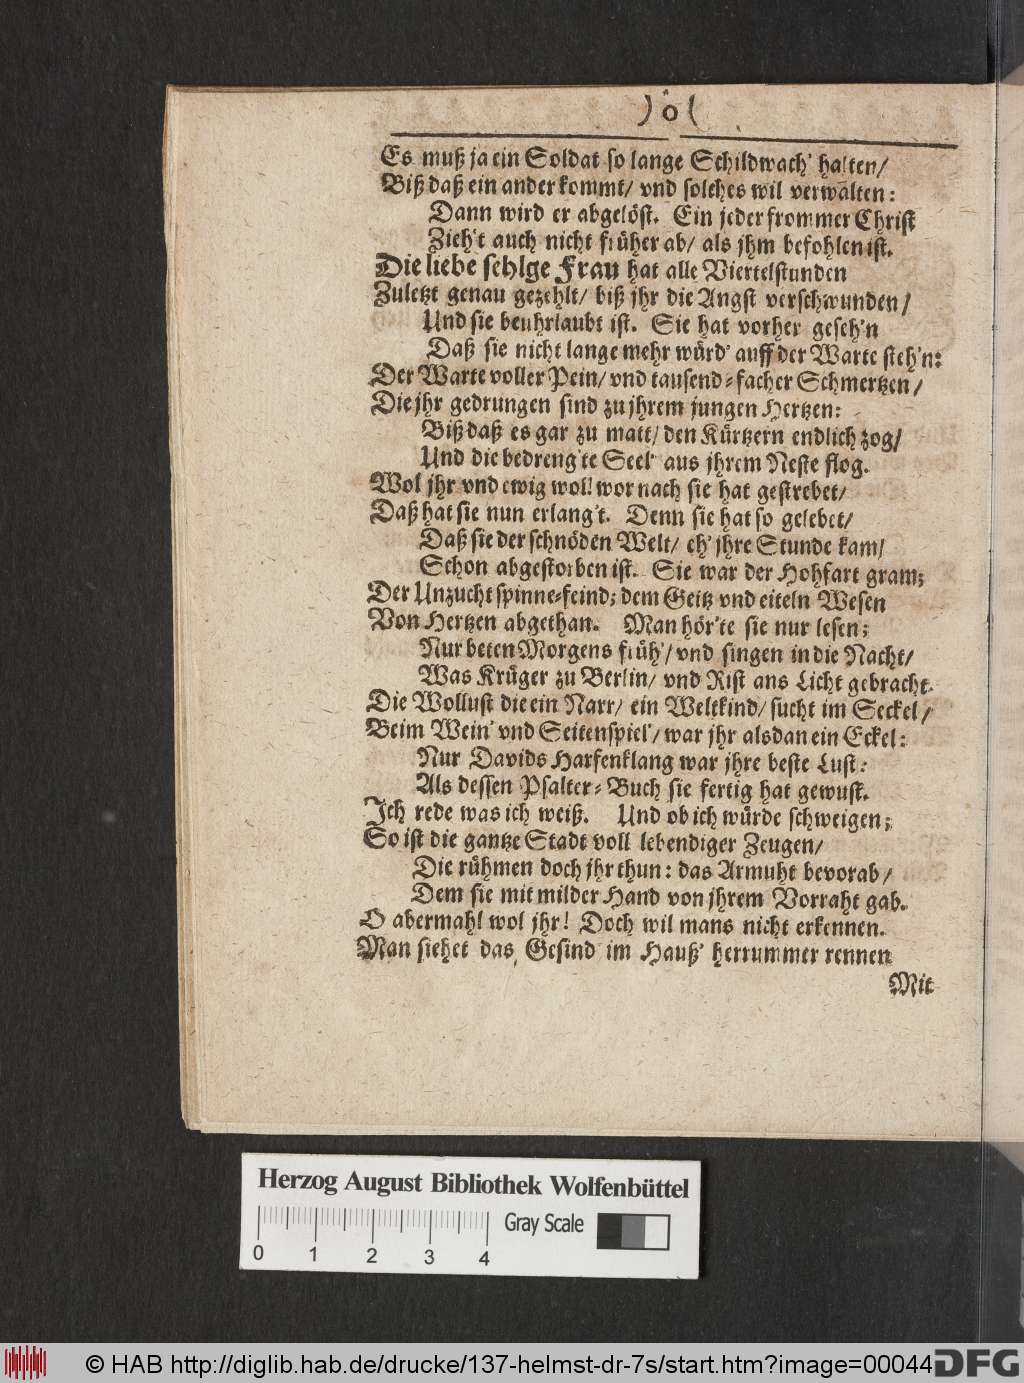 ) o (
Es muß ja ein Soldat so lange Schildwach' halten/
Biß daß ein ander kommt/ vnd solches wil verwalten:
Dann wird er abgelöst. Ein jeder frommer Christ
Zieh't auch nicht früher ab/ als jhm befohlen ist.
Die liebe sehlge Frau hat alle Viertelstunden
Zuletzt genau gezehlt/ biß jhr die Angst verschwunden/
Und sie beuhrlaubt ist. Sie hat vorher geseh'n
Daß sie nicht lange mehr würd' auff der Warte steh'n:
Der Warte voller Pein/ vnd tausend-facher Schmertzen/
Die jhr gedrungen sind zu jhrem jungen Hertzen:
Biß daß es gar zu matt/ den Kürtzern endlich zog/
Und die bedreng'te Seel' aus jhrem Neste flog.
Wol jhr vnd ewig wol! wornach sie hat gestrebet/
Daß hat sie nun erlang't. Denn sie hat so gelebet/
Daß sie der schnöden Welt/ eh' jhre Stunde kam/
Schon abgestorben ist. Sie war der Hohfart gram;
Der Unzucht spinne-feind; dem Geitz vnd eiteln Wesen
Von Hertzen abgethan. Man hör'te sie nur lesen;
Nur beten Morgens früh'/ vnd singen in die Nacht/
Was Krüger zu Berlin/ vnd Rist ans Licht gebracht.
Die Wollust die ein Narr/ ein Weltkind/ sucht im Seckel/
Beim Wein' vnd Seitenspiel'/ war jhr alsdan ein Eckel:
Nur Davids Harfenklang war jhre beste Lust:
Als dessen Psalter-Buch sie fertig hat gewust.
Jch rede was ich weiß. Und ob ich würde schweigen;
So ist die gantze Stadt voll lebendiger Zeugen/
Die rühmen doch jhr thun: das Armuht bevorab/
Dem sie mit milder Hand von jhrem Vorraht gab.
O abermahl wol jhr! Doch wil mans nicht erkennen.
Man siehet das Gesind im Hauß' herrummer rennen
Mit
Herzog August Bibliothek Wolfenbüttel
Gray Scale
0 1 2 3 4
© HAB http://diglib.hab.de/drucke/137-helmst-dr-7s/start.htm?image=00044
DFG